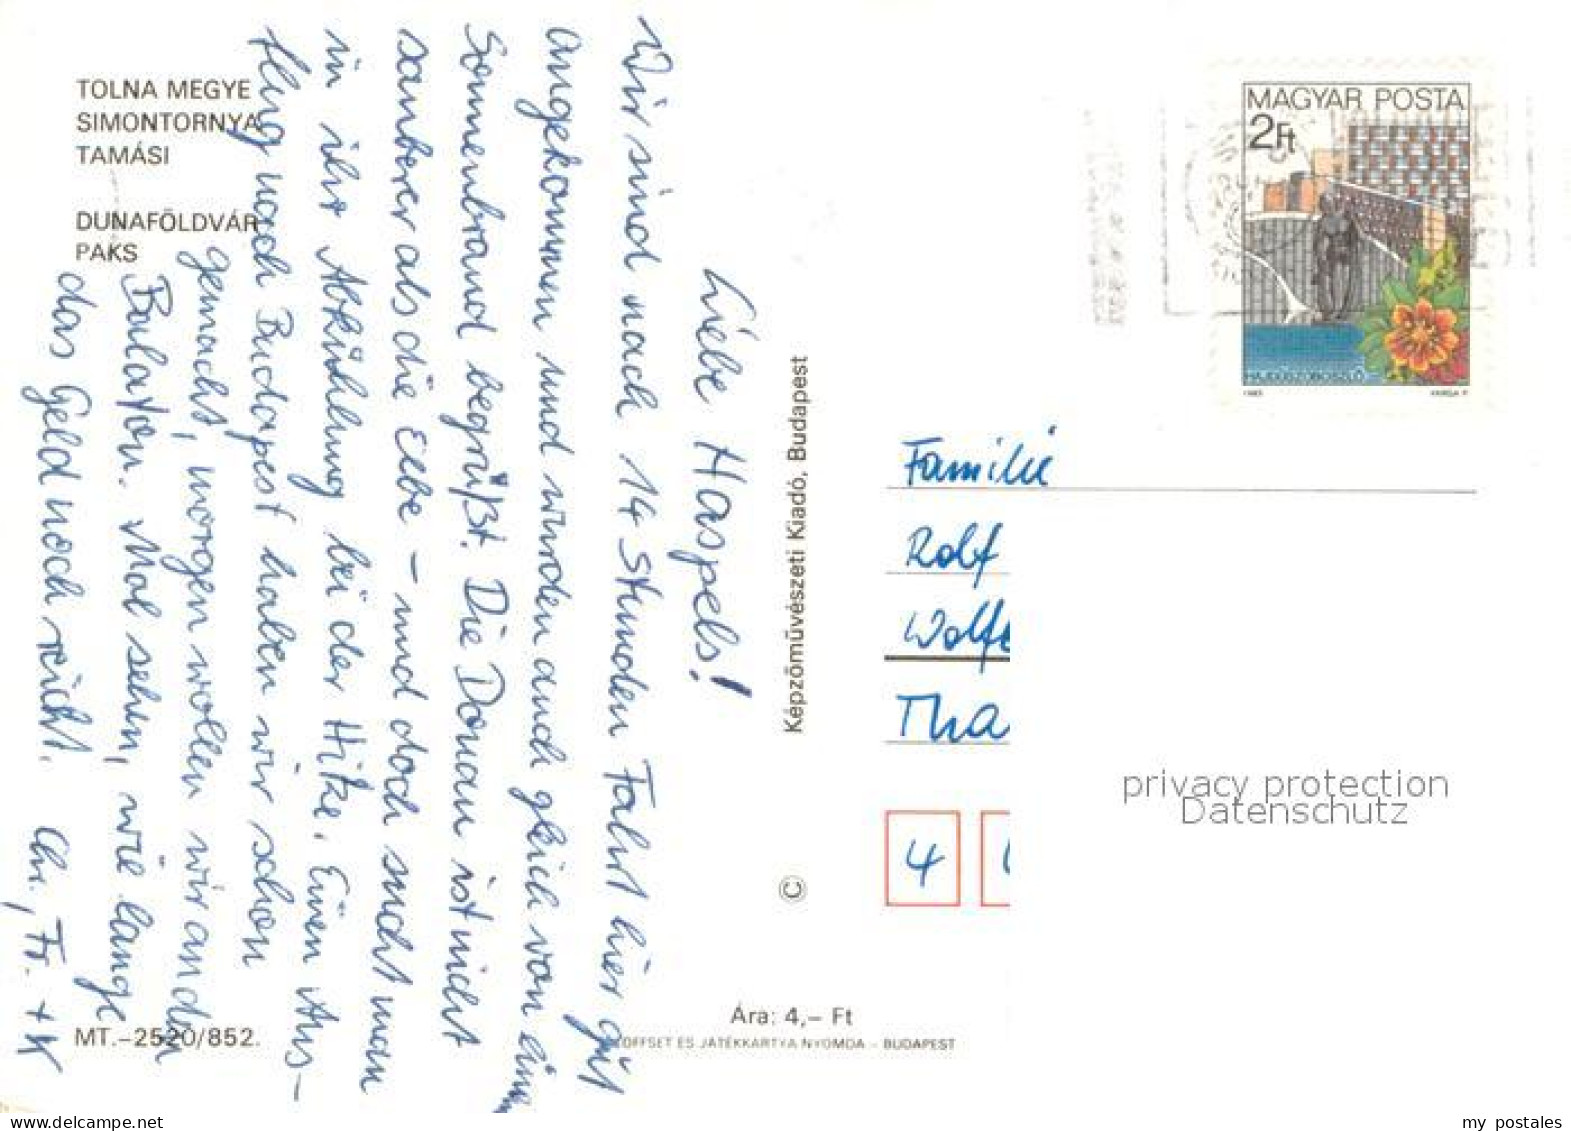 TOLNA MEGYE
SIMONTORNYA
TAMÁSI
DUNAFÖLDVÁR
PAKS
Liebe Haspels!
Wir sind nach 14 Stunden Fahrt hier gut
angekommen und wurden auch gleich von einem
Sonnenbrand begrüßt. Die Donau ist nicht
sauberer als die Elbe – und doch sucht man
in ihr Abkühlung bei der Hitze. Einen Aus-
flug nach Budapest haben wir schon
gemacht, morgen wollen wir an den
Balaton. Mal sehen, wie lange
das Geld noch reicht.
Chr., Fr. + K
MT.–2520/852.
Képzőművészeti Kiadó, Budapest
©
Ára: 4,– Ft
OFFSET ÉS JÁTÉKKÁRTYA NYOMDA – BUDAPEST
MAGYAR POSTA
2Ft
HAJDÚSZOBOSZLÓ
1983 VARGA P.
Familie
Rolf
Wolfe
Tha
4
privacy protection
Datenschutz
my postales